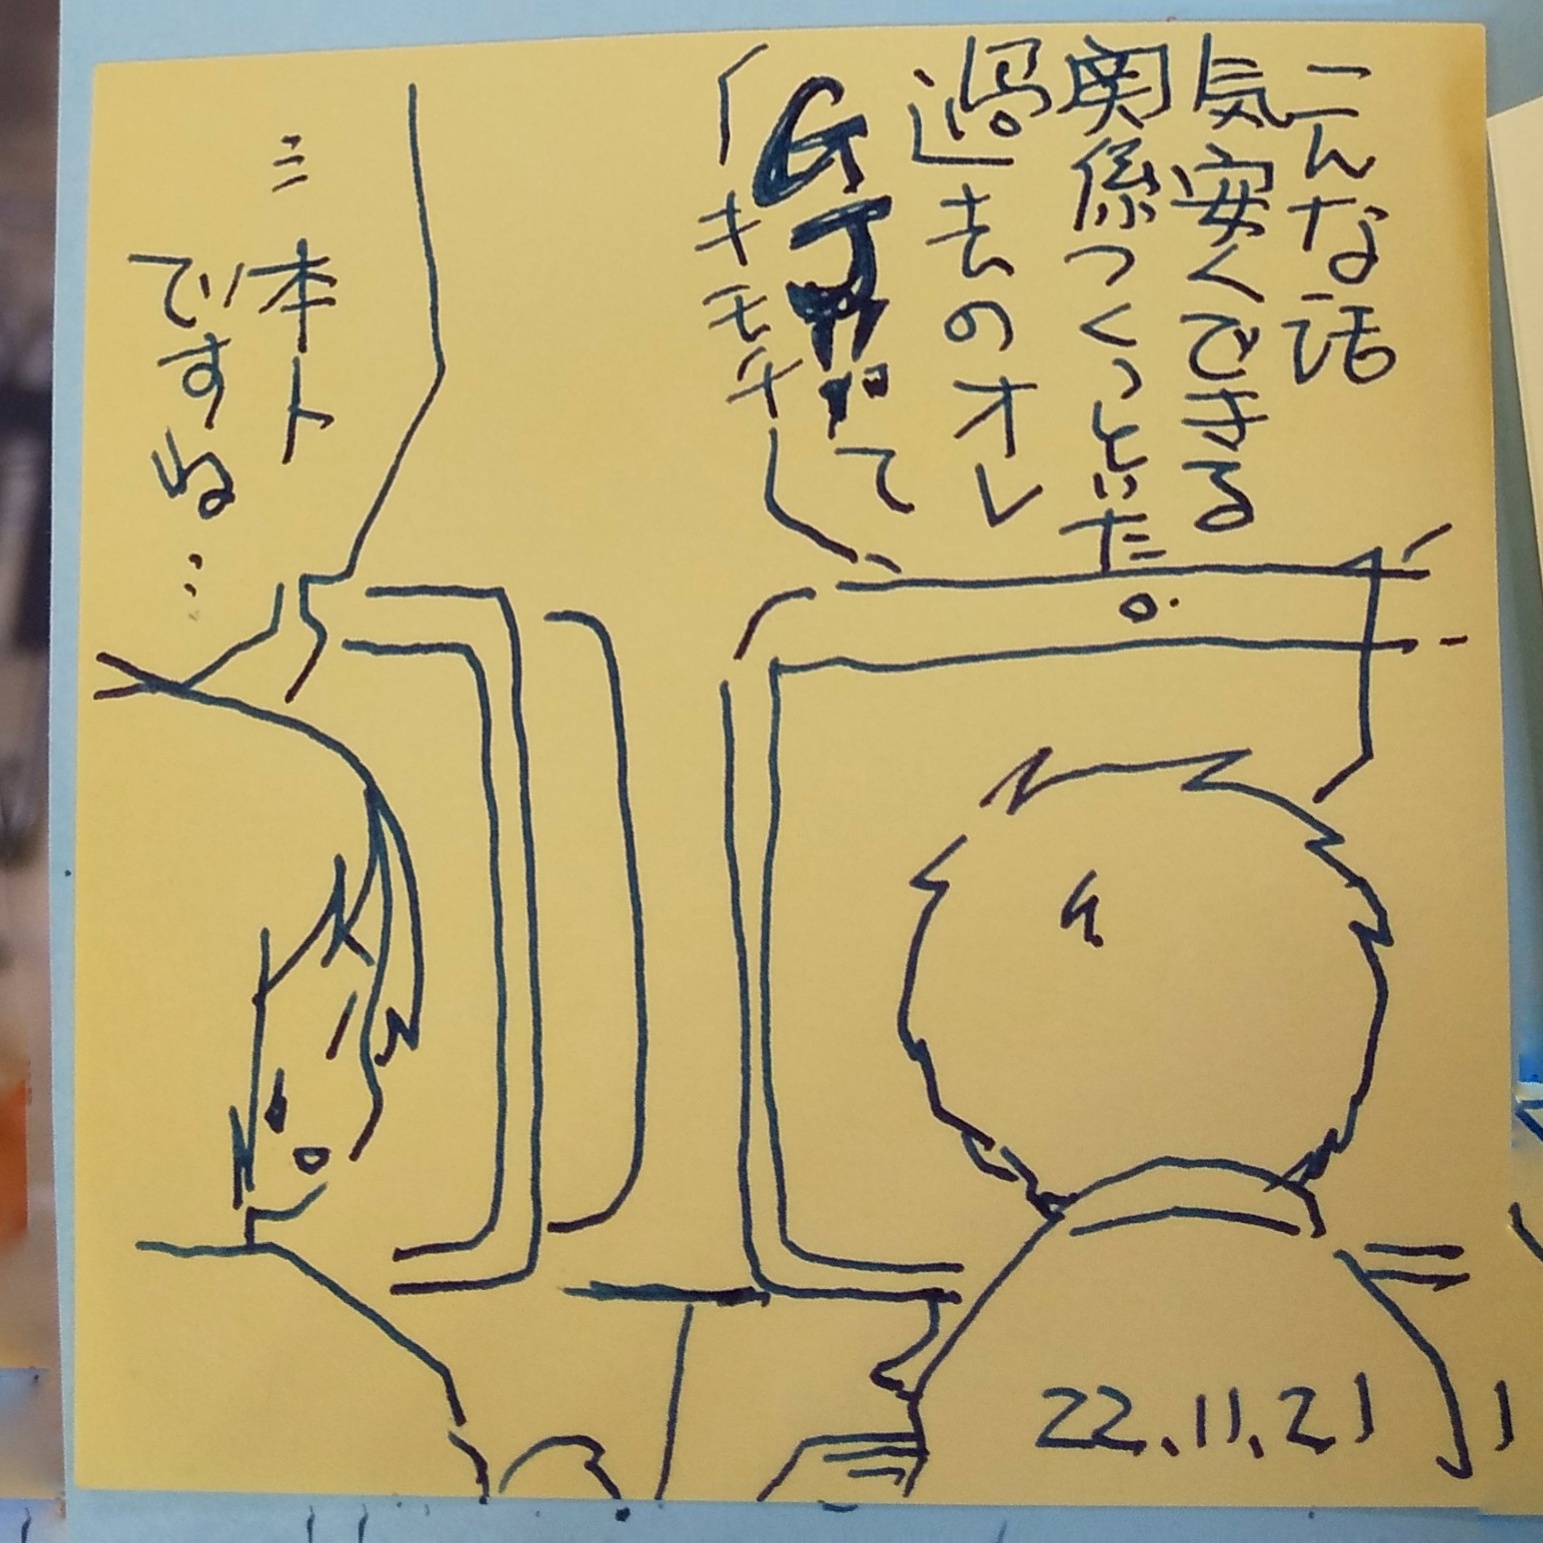 こんな話
気安くできる
関係つくっといた
過去のオレ
GJって
キモチ
ミ本ト
ですね…
22.11.21